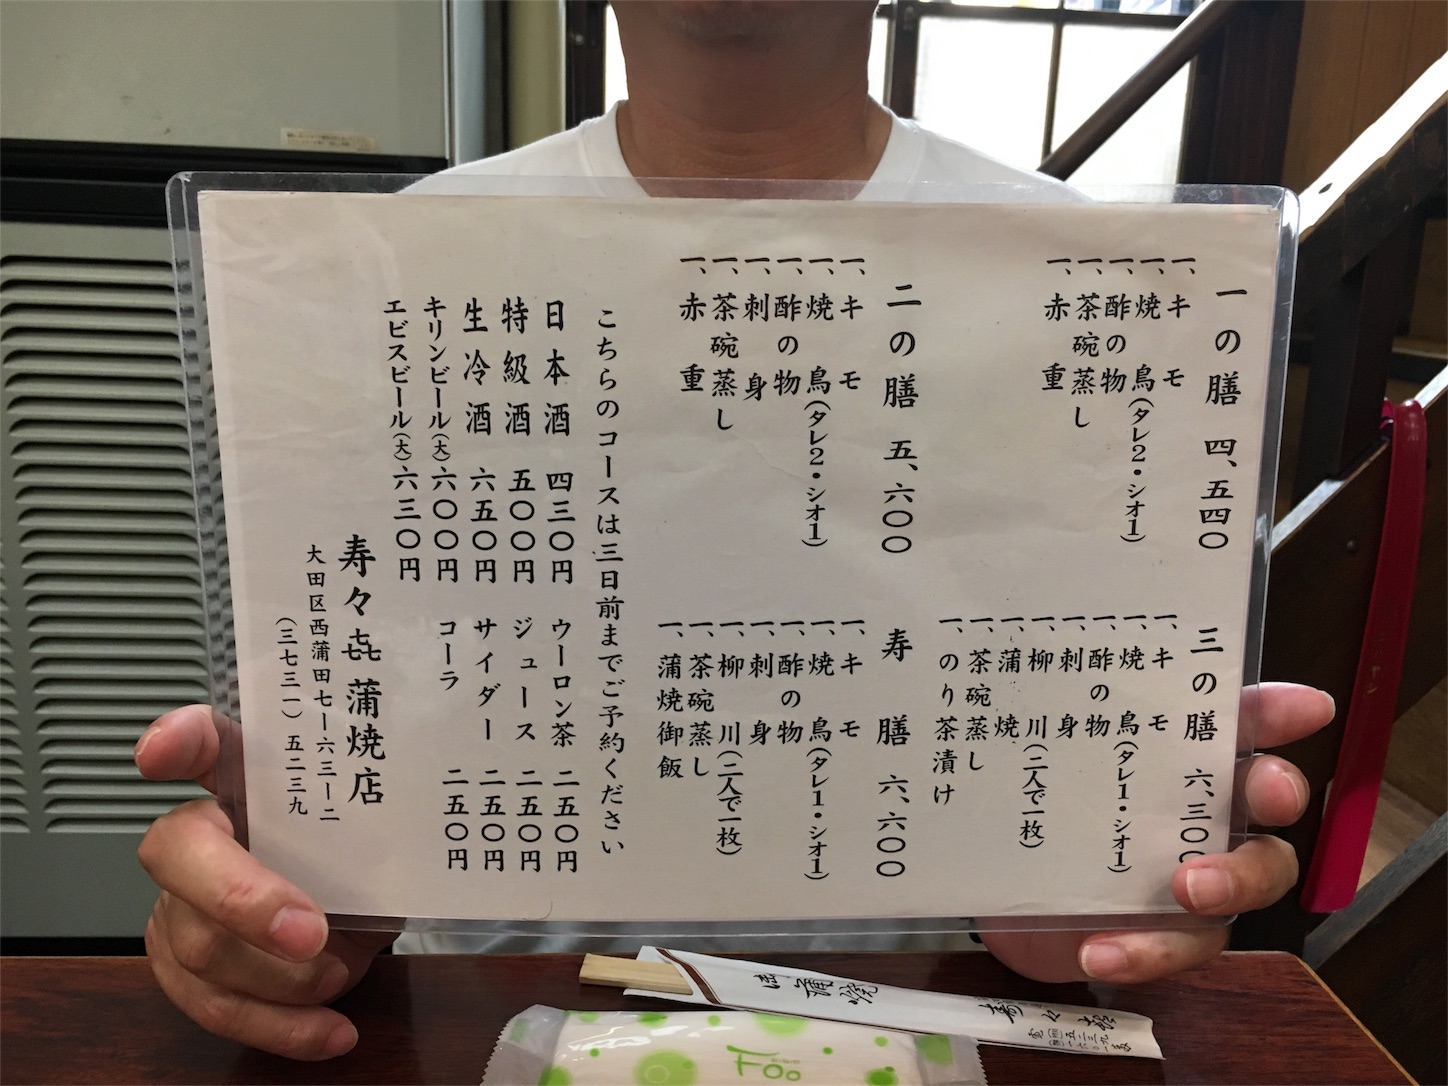 一の膳 四、五四〇
一、キモ
一、焼鳥(タレ2・シオ1)
一、酢の物
一、茶碗蒸し
一、赤重
二の膳 五、六〇〇
一、キモ
一、焼鳥(タレ2・シオ1)
一、酢の物
一、刺身
一、茶碗蒸し
一、赤重
三の膳 六、三〇〇
一、キモ
一、焼鳥(タレ1・シオ1)
一、酢の物
一、刺身
一、柳川(二人で一枚)
一、蒲焼
一、茶碗蒸し
一、のり茶漬け
寿膳 六、六〇〇
一、キモ
一、焼鳥(タレ1・シオ1)
一、酢の物
一、刺身
一、柳川(二人で一枚)
一、茶碗蒸し
一、蒲焼御飯
こちらのコースは三日前までご予約ください
日本酒 四三〇円
特級酒 五〇〇円
生冷酒 六五〇円
キリンビール(大)六〇〇円
エビスビール(大)六三〇円
ウーロン茶 二五〇円
ジュース 二五〇円
サイダー 二五〇円
コーラ 二五〇円
寿々㐂蒲焼店
大田区西蒲田七ー六三ー二
(三七三一)五二三九
御蒲焼
寿々㐂